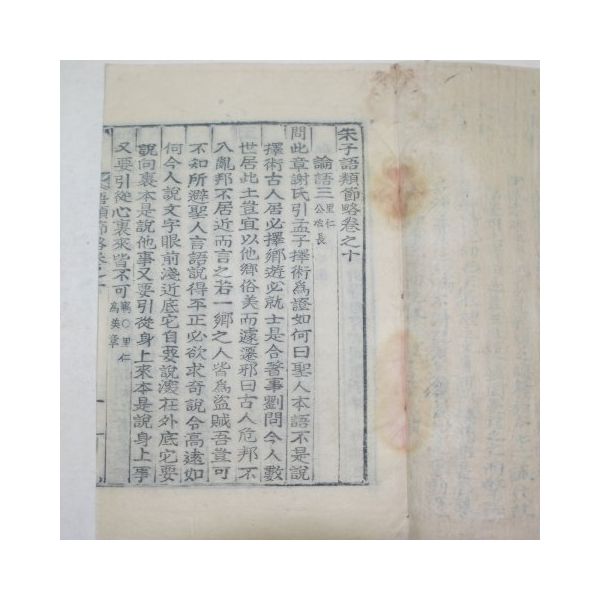 朱子語類節略卷之十
論語三 里仁 公冶長
問此章謝氏引孟子擇術爲證如何曰聖人本語不是說
擇術古人居必擇鄉遊必就士是合著事劉問今人數
世居此土豈宜以他鄉俗美而遽遷邪曰古人危邦不
入亂邦不居近而言之若一鄉之人皆爲盜賊吾豈可
不知所避聖人言語說得平正必欲求奇說令高遠如
何今人說文字眼前淺近底它自要說深在外底它要
說向裏本是說他事又要引從身上來本是說身上事
又要引從心裏來皆不可 㽦 ○ 里仁 爲美章
語類節略卷之十